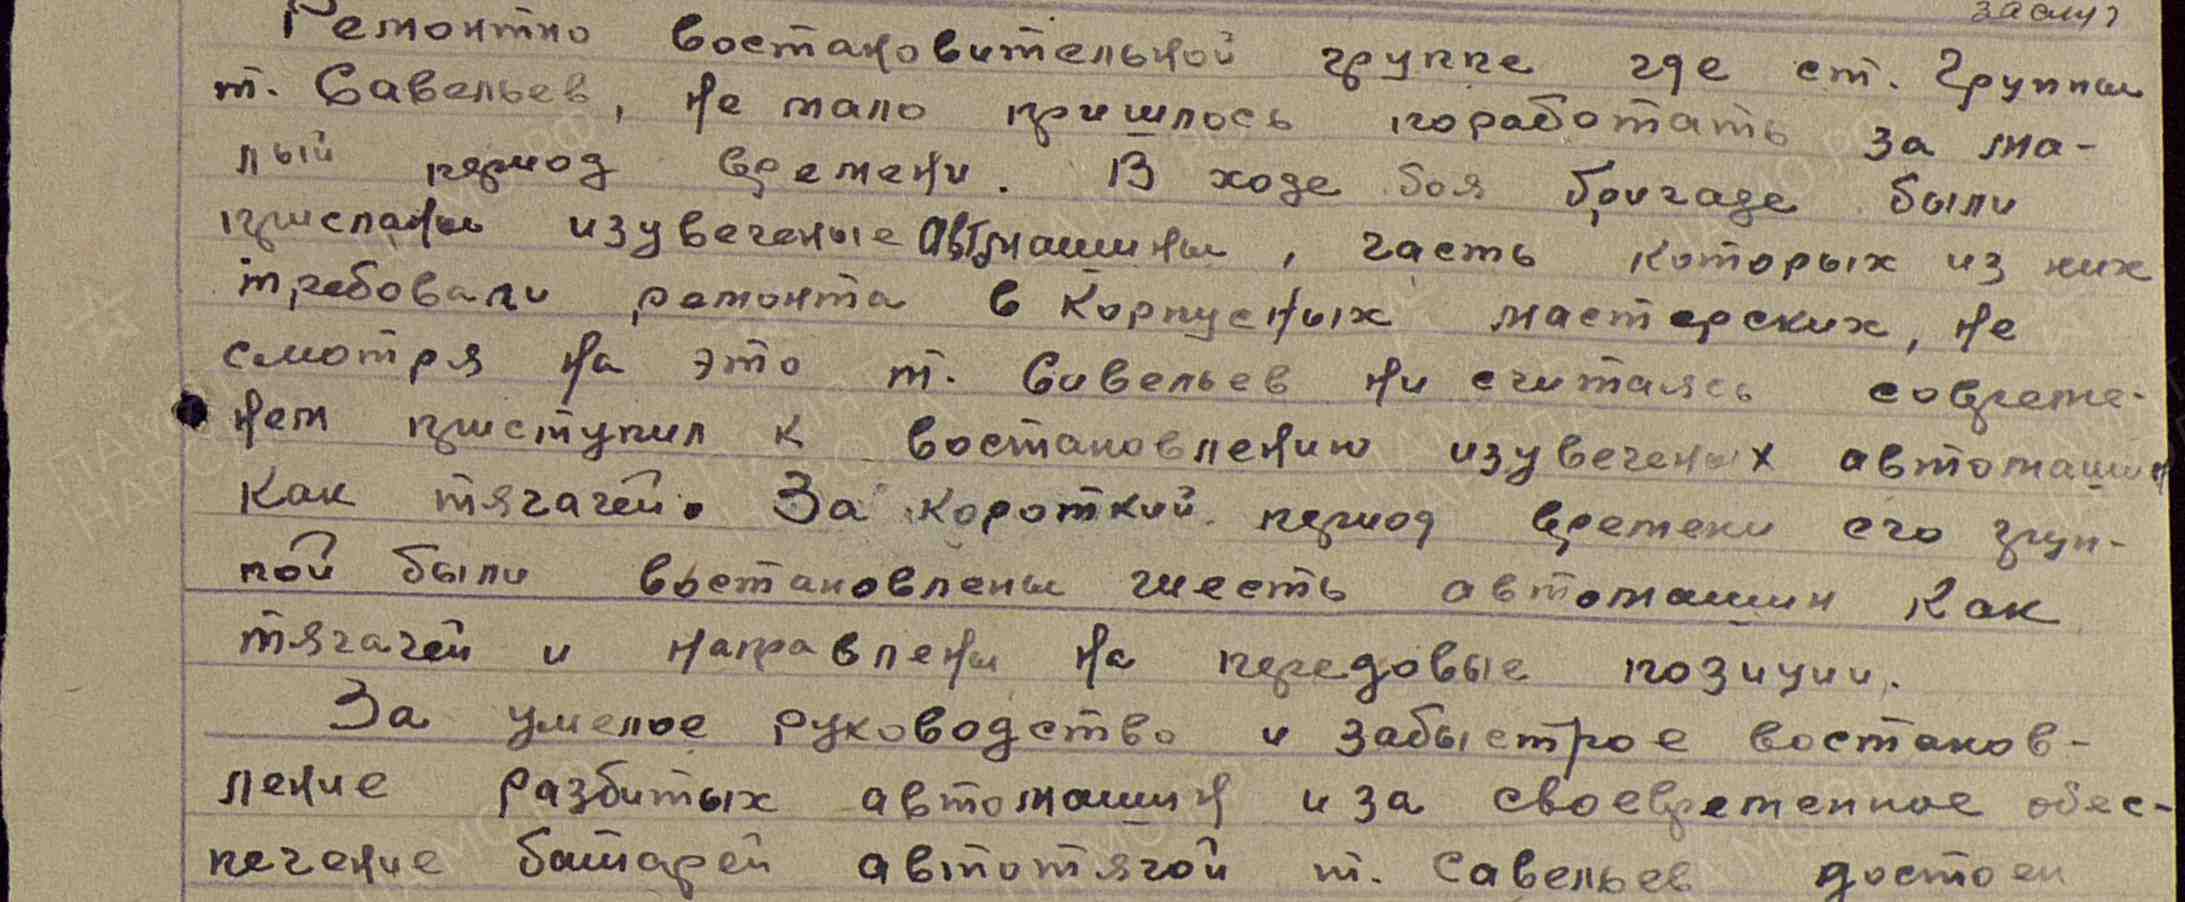 заслуг
Ремонтно востановительной группе где ст. Группы
т. Савельев, не мало пришлось поработать за ма-
лый период времени. В ходе боя бригаде были
присланы изувеченые автмашины, часть которых из них
требовали ремонта в Корпусных мастерских, не
смотря на это т. Савельев ни считаясь совреме-
нем приступил к востановлению изувеченых автомашин
как тягачей. За короткий период времени его груп-
пой были востановлены шесть автомашин как
тягачей и направлены на передовые позиции.
За умелое руководство и забыстрое востанов-
ление разбитых автомашин и за своевременное обес-
печение батарей автотягой т. Савельев достоен